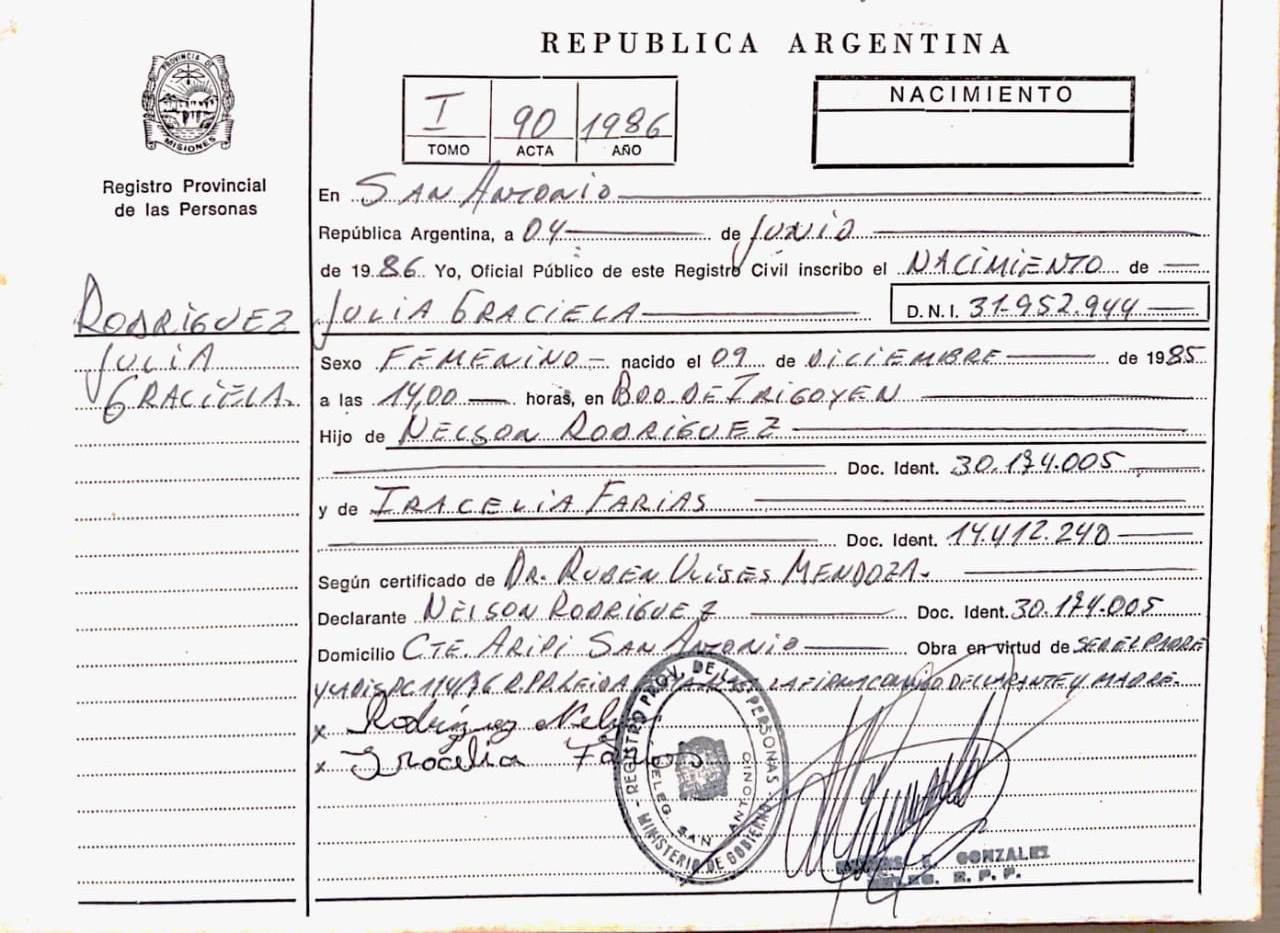 REPUBLICA ARGENTINA
PROVINCIA DE
MISIONES
Registro Provincial
de las Personas
I 90 1986
TOMO ACTA AÑO
NACIMIENTO
En SAN ANTONIO
República Argentina, a 04 de JUNIO
de 1986 Yo, Oficial Público de este Registro Civil inscribo el NACIMIENTO de
RODRIGUEZ
JULIA
GRACIELA.
JULIA GRACIELA D.N.I. 31.952.944
Sexo FEMENINO nacido el 09 de DICIEMBRE de 1985
a las 14,00 horas, en BDO DE IRIGOYEN
Hijo de NELSON RODRIGUEZ
Doc. Ident. 30.174.005
y de IRACELIA FARIAS
Doc. Ident. 14.412.240
Según certificado de DR. RUBEN ULISES MENDOZA.
Declarante NELSON RODRIGUEZ Doc. Ident. 30.174.005
Domicilio CTE. ARIPI SAN ANTONIO Obra en virtud de SER EL PADRE
LA FIRMA CONMIGO DECLARANTE Y MADRE.
x Rodríguez Nelson
x Iracelia Farias
REGISTRO PROV. DE LAS PERSONAS
DELEG. SAN ANTONIO
MINISTERIO DE GOBIERNO
GONZALEZ
R. P. P.